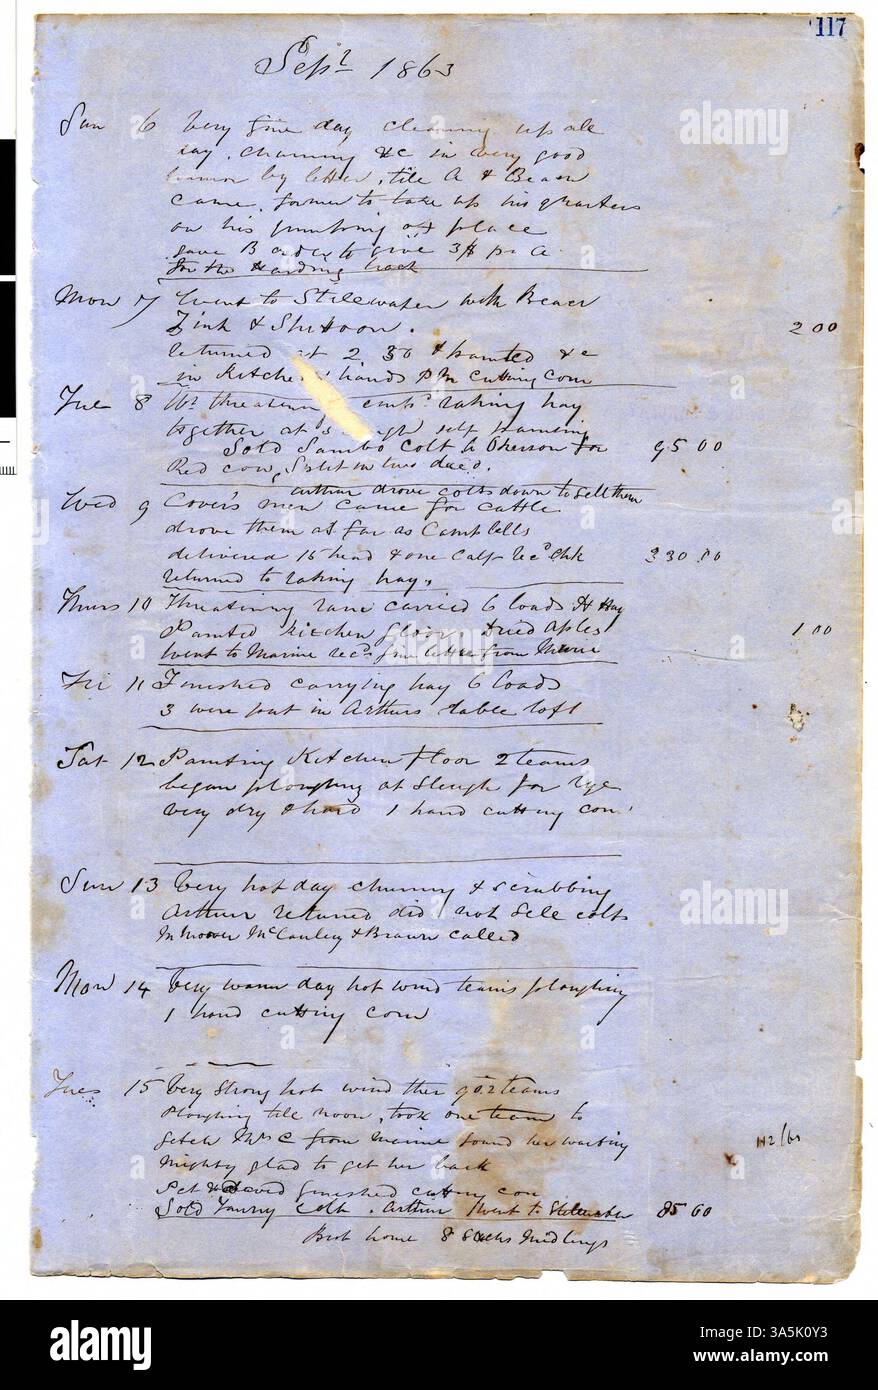 117
Sept 1863
Sun 6 Very fine day cleaning up all
day. churning &c in very good
humor by letter, till A & Beaer
came. former to take up his quarters
on his pumping off place
gave B order to give 3$ pr A
for the Harding hack
Mon 7 Went to Stillwater with Beaer
Zink & Shittoon. 2 00
returned at 2 30 & painted &c
in Kitchen hands PM cutting corn
Tue 8 Wr threatening raking hay
together at self painting
Sold Sambo colt to Okerson for 95 00
Red cow, Split in two deed.
Arthur drove colts down to sell them
Wed 9 Cover's men came for cattle
drove them as far as Campbells
delivered 15 head & one Calf rec'd Chk 330.00
returned to raking hay.
Thurs 10 Threatening rane carried 6 loads H Hay
Painted kitchen floor Dried aples 1 00
Went to Marine recd fine letter from
Fri 11 Finished carrying hay 6 loads
3 were put in Arthurs table loft
Sat 12 Painting Kitchen floor 2 teams
began ploughing at Slough for rye
very dry & hard 1 hand cutting corn
Sun 13 Very hot day churning & scrubbing
Arthur returned did not Sele colts
McCauley & Brawn called
Mon 14 Very warm day hot wind teams ploughing
1 hand cutting corn
Tues 15 Very strong hot wind ther 90 2 teams
Ploughing till noon, took one team to
fetch Mrs C from Marine found her waiting
Mighty glad to get her back
Pet & finished cutting con
Sold Fanny colt. Arthur went to Stillwater 85 00
Brot home 8 Sacks Midlings
alamy
Image ID: 3A5K0Y3
www.alamy.com